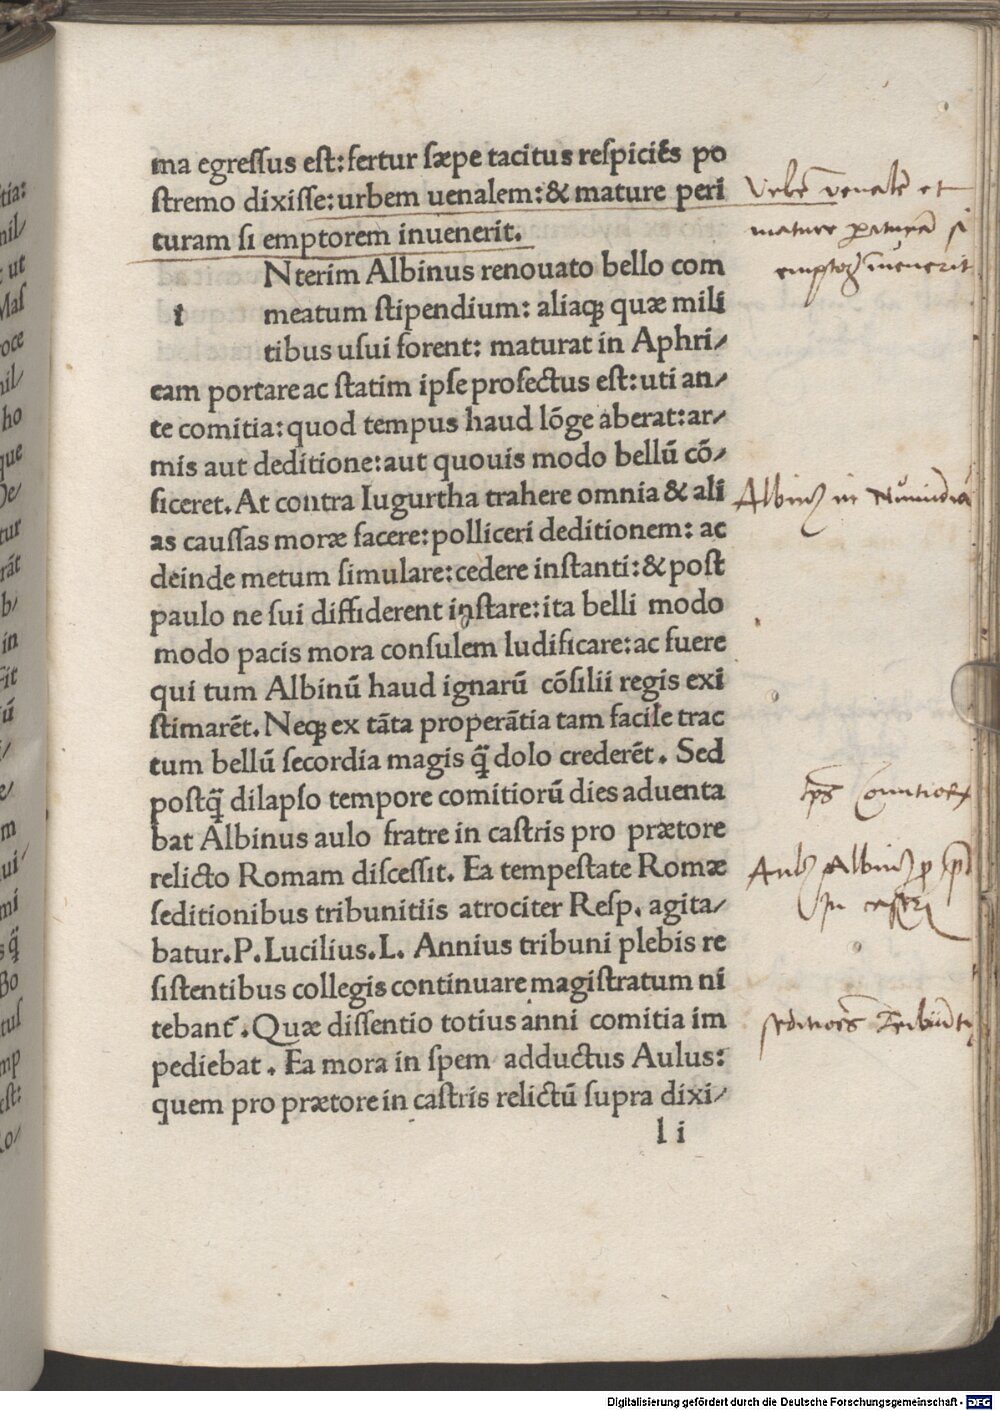 ma egreſſus eſt: fertur ſæpe tacitus reſpiciẽs po
ſtremo dixiſſe: urbem uenalem: & mature peri
turam ſi emptorem inuenerit.
Nterim Albinus renouato bello com
i meatum ſtipendium: aliaq; quæ mili
tibus uſui forent: maturat in Aphri/
cam portare ac ſtatim ipſe profectus eſt: uti an/
te comitia: quod tempus haud lõge aberat: ar/
mis aut deditione: aut quouis modo bellũ cõ/
ficeret. At contra Iugurtha trahere omnia & ali
as cauſſas moræ facere: polliceri deditionem: ac
deinde metum ſimulare: cedere inſtanti: & poſt
paulo ne ſui diffiderent inſtare: ita belli modo
modo pacis mora conſulem ludificare: ac fuere
qui tum Albinũ haud ignarũ cõſilii regis exi
ſtimarẽt. Neq; ex tãta properãtia tam facile trac
tum bellũ ſecordia magis q̃ dolo crederẽt. Sed
poſtq̃ dilapſo tempore comitiorũ dies aduenta
bat Albinus aulo fratre in caſtris pro prætore
relicto Romam diſceſſit. Ea tempeſtate Romæ
ſeditionibus tribunitiis atrociter Reſp. agita/
batur. P. Lucilius. L. Annius tribuni plebis re
ſiſtentibus collegis continuare magiſtratum ni
tebant̃. Quæ diſſentio totius anni comitia im
pediebat. Ea mora in ſpem adductus Aulus:
quem pro prætore in caſtris relictũ ſupra dixi/
l i
Vrbẽ venalẽ et
mature periturã ſi
emptorẽ inuenerit
Albinus in Numidia
tps Comitiorum
Aulus Albinus p
in caſtris
ſeditiones Tribun
Digitalisierung gefördert durch die Deutsche Forschungsgemeinschaft - DFG